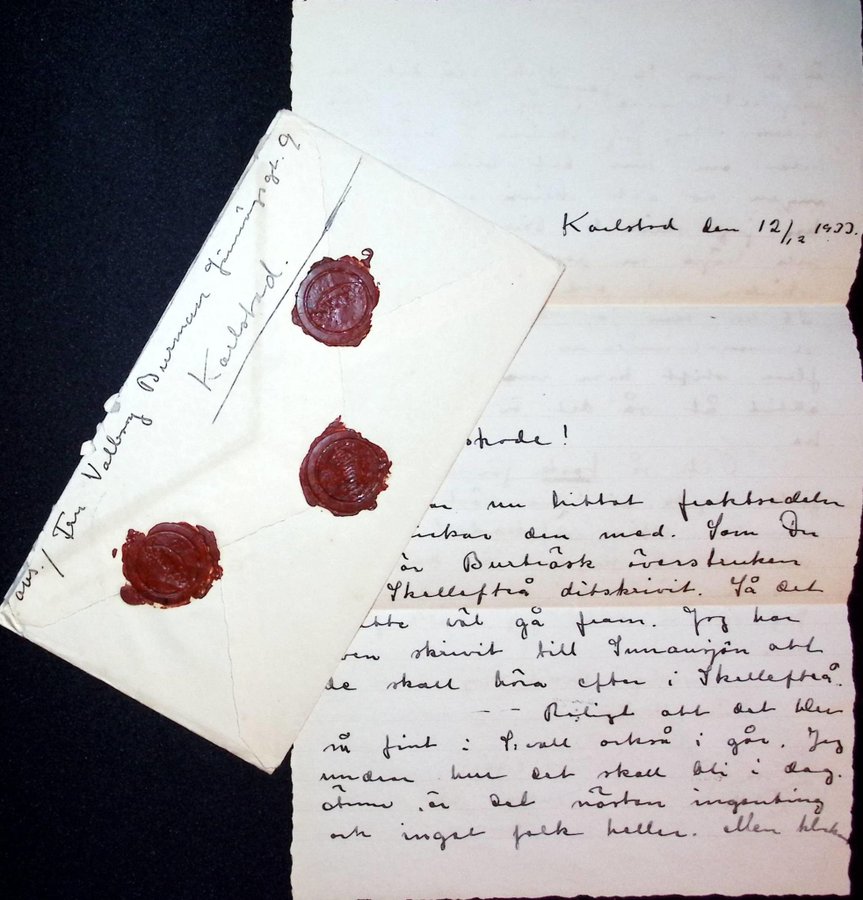 avs./ Fru Valborg Burman Järnvägsgt. 9
Karlstad.
Karlstad den 12/12 1933.
skade!
ar nu hittat fraktsedeln
ickar den med. Som Du
är Burträsk överstruken
Skellefteå ditskrivit. Så det
väl gå fram. Jag har
ven skrivit till Innansjön att
de skall höra efter i Skellefteå.
-- Riligt att det blev
så fint i S:vall också i går. Jag
undrar hur det skall bli i dag.
är det nästan ingenting
och inget folk heller.